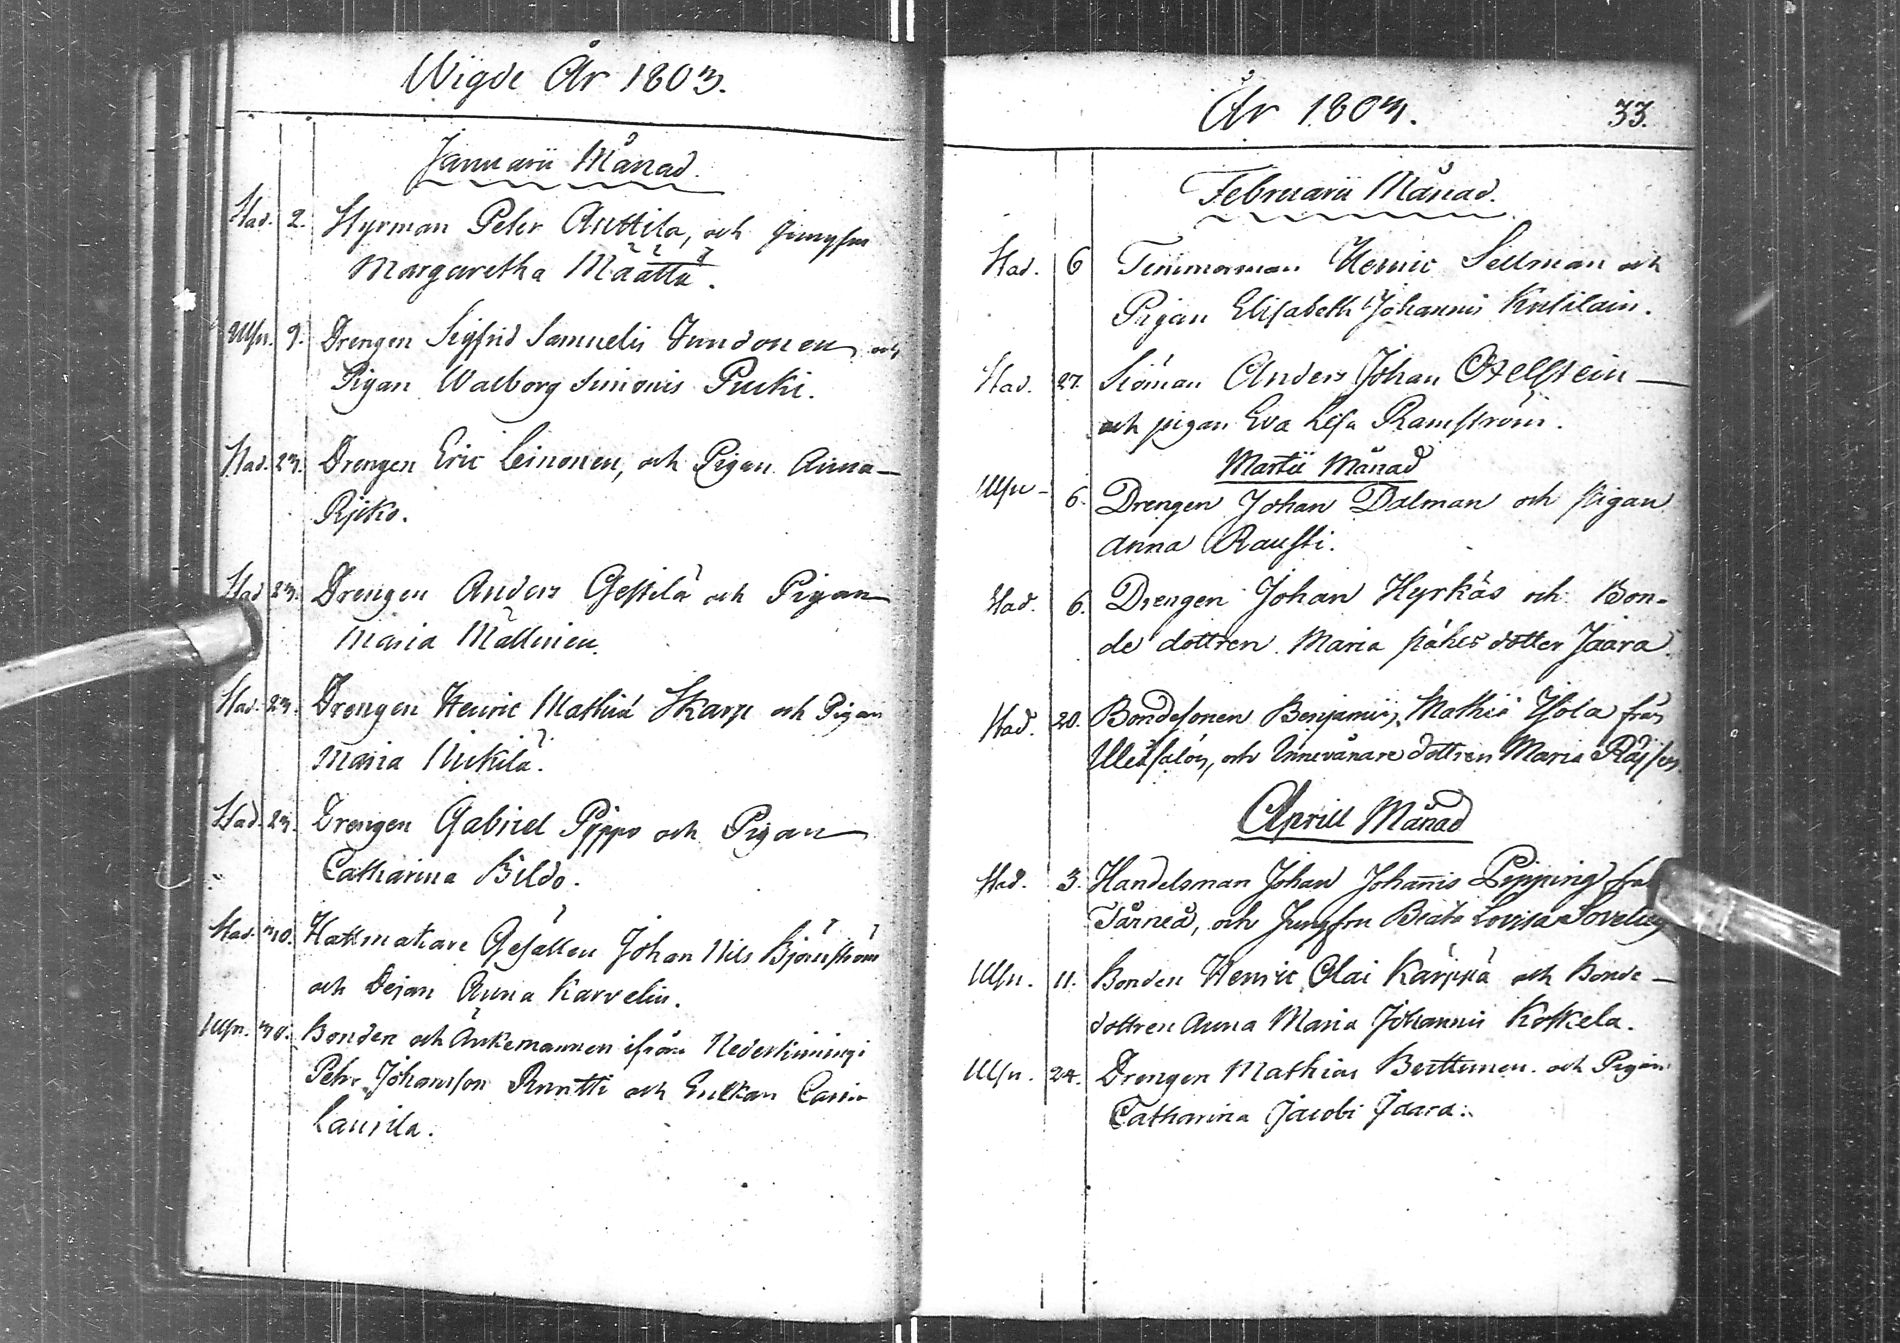 Wigde År 1803.
Januarii Månad.
Stad. 2. Hyrman Pehr Anttila, och Jungfru
Margaretha Määttä.
Ulfn. 9. Drengen Sigfrid Samuelis Jundonen och
Pigan Walborg Simonis Pucki.
Stad. 23. Drengen Eric Leinonen, och Pigan Anna
Rjiko.
Stad 23. Drengen Anders Gestilä och Pigan
Maria Mällinen.
Stad. 23. Drengen Henric Mathiæ Skarp och Pigan
Maria Nickilä.
Stad. 23. Drengen Gabriel Pyppo och Pigan
Catharina Bildo.
Stad. 30. Hattmakare Gesällen Johan Nils Björnström
och Dejan Anna Karvelin.
Ulfn. 30. Bonden och Ankemannen ifrån Nederkimingi
Pehr Johansson Runtti och Enckan Carin
Laurila.
År 1803. 33.
Februarii Månad.
Stad. 6 Timmerman Henric Sellman och
Pigan Elisabeth Johannis Knihilain.
Stad. 27. Siöman Anders Johan Oxellstein
och pigan Eva Lisa Ramström.
Martii Månad
Ulfn 6. Drengen Johan Dalman och Pigan
Anna Rausti.
Stad. 6. Drengen Johan Hyrkäs och Bon-
de dottren Maria Påhls dotter Jaara.
Stad. 20. Bondesonen Benjamin Mathiæ Isola från
Uleåsalon, och Innevånare dottren Maria Räisen.
Aprill Månad
Stad. 3. Handelsman Johan Johannis Pipping
Tårneå, och Jungfru Beata Lovisa
Ulfn. 11. Bonden Henric Olai Kärpkä och Bonde
dottren Anna Maria Johannis Koskela.
Ulfn. 24. Drengen Mathias Berttunen och Pigan
Catharina Jacobi Jdara.